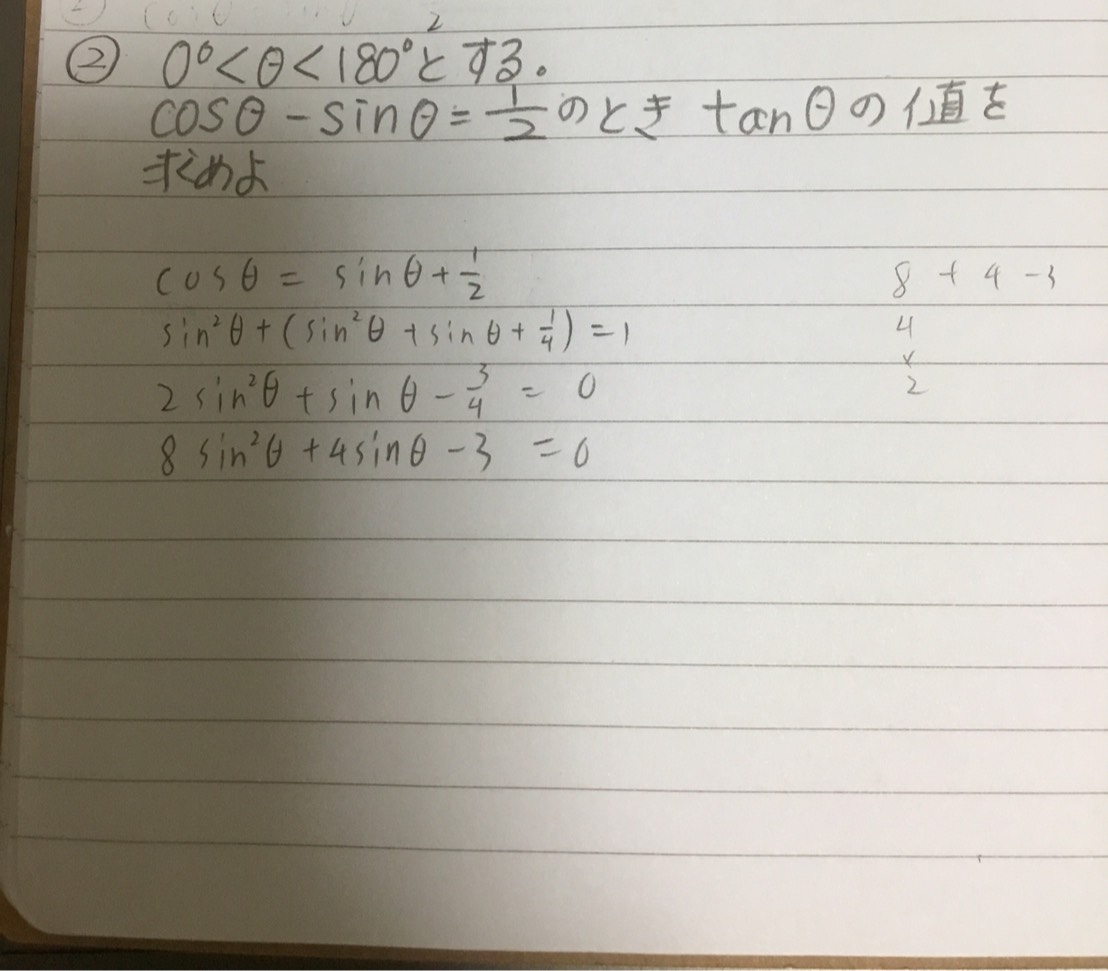 ② 0°<θ<180°とする。
cosθ-sinθ=1/2のとき tanθの値を
求めよ
cosθ = sinθ+1/2
sin²θ+(sin²θ+sinθ+1/4)=1
2sin²θ+sinθ-3/4 = 0
8sin²θ+4sinθ-3 =0
8 + 4 -3
4
×
2